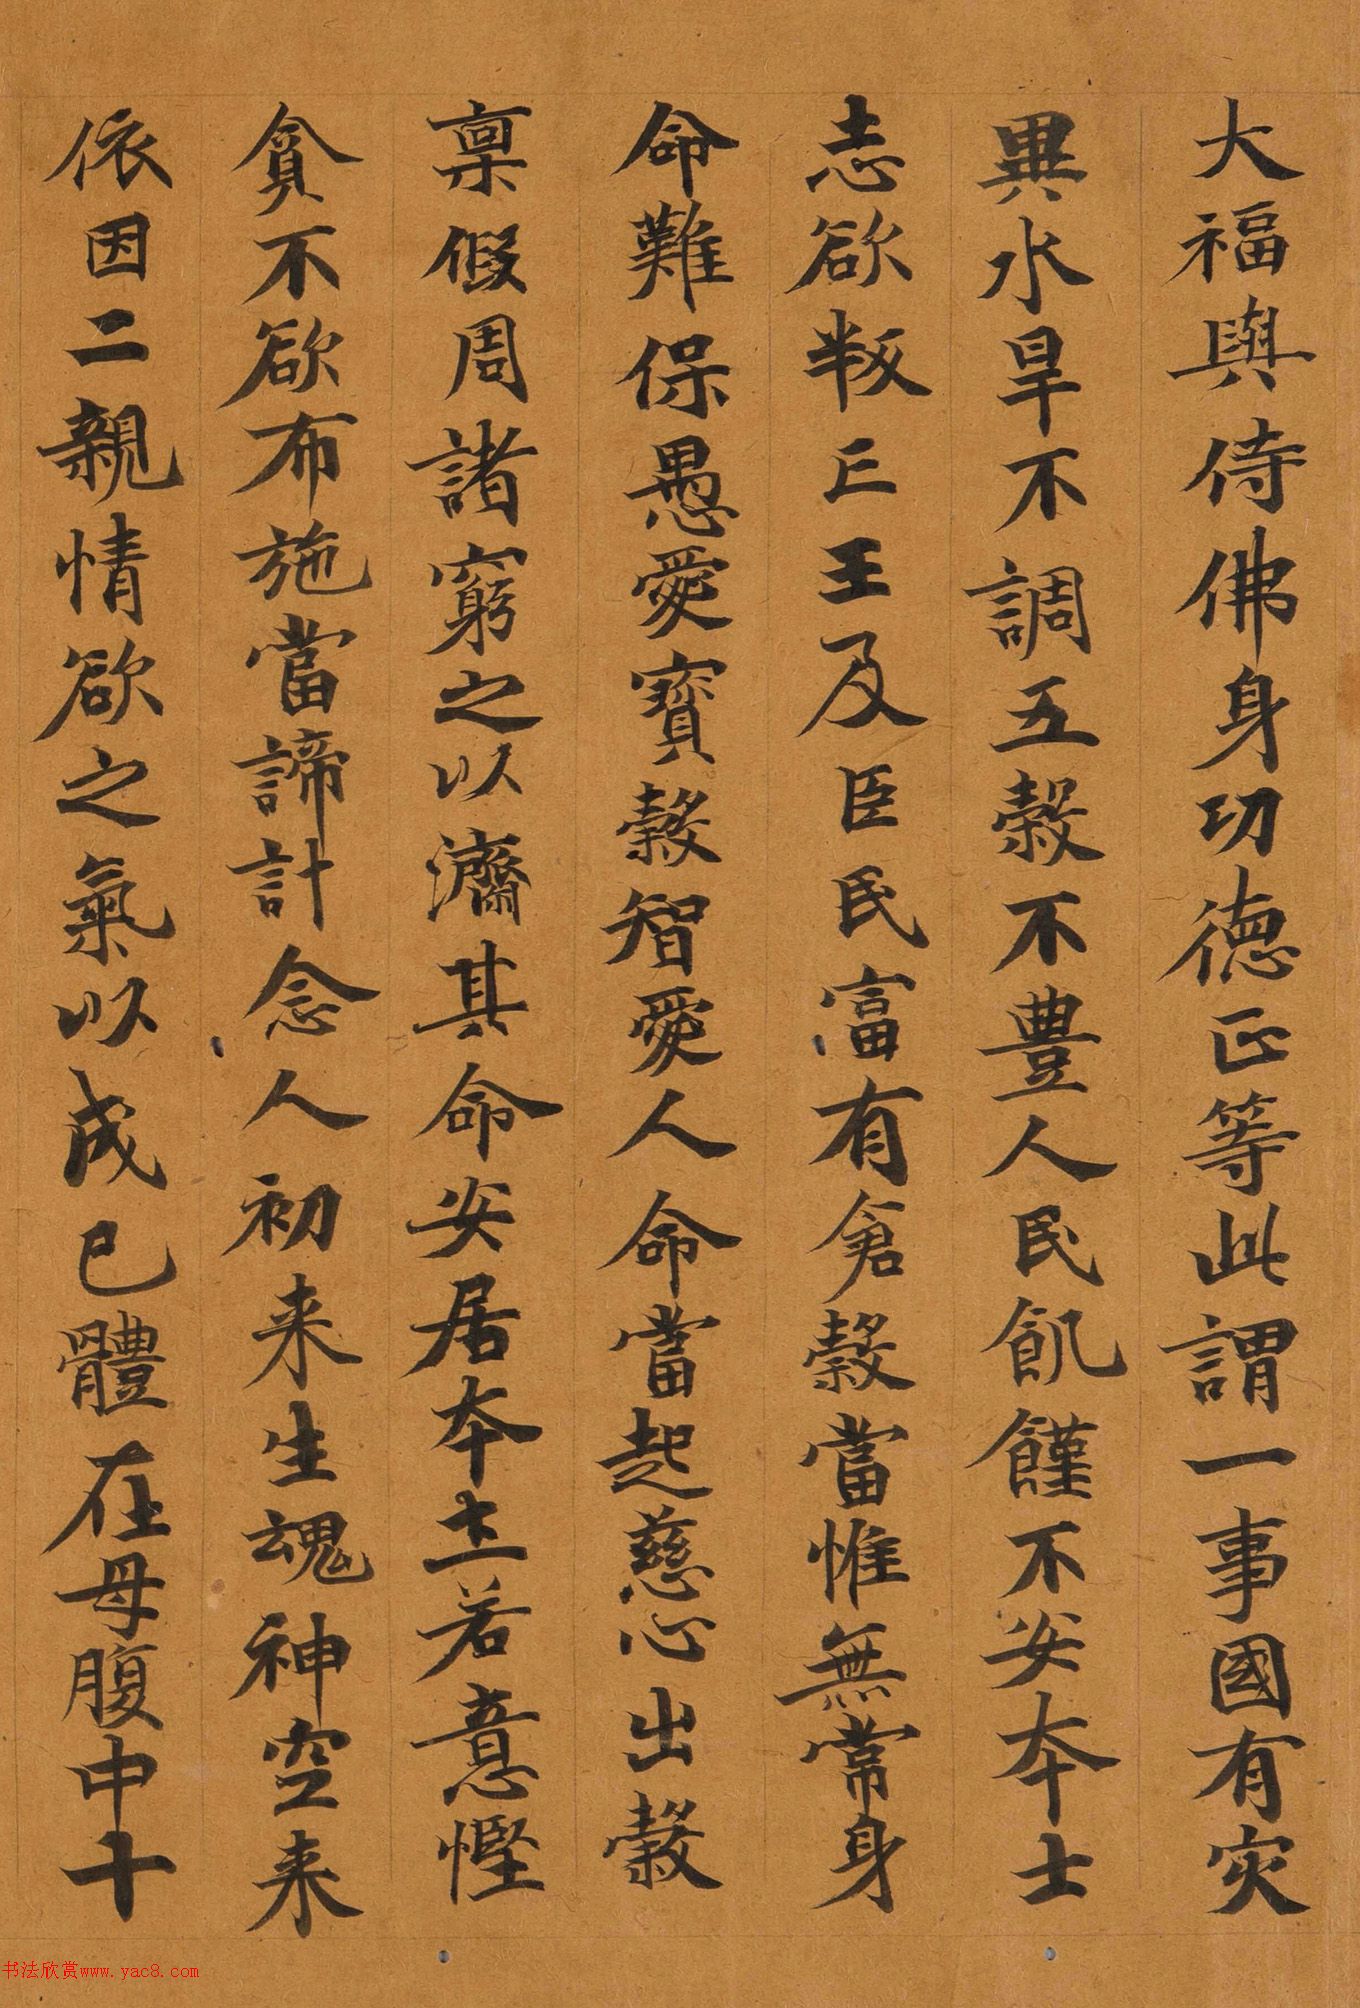 大福與侍佛身功德正等此謂一事國有灾
異水旱不調五穀不豊人民飢饉不安本土
志欲叛亡王及臣民富有倉穀當惟無常身
命難保愚愛寶穀智愛人命當起慈心出穀
稟假周諸窮之以濟其命安居本土若意慳
貪不欲布施當諦計念人初来生魂神空来
依因二親情欲之氣以成已體在母腹中十
书法欣赏www.yac8.com